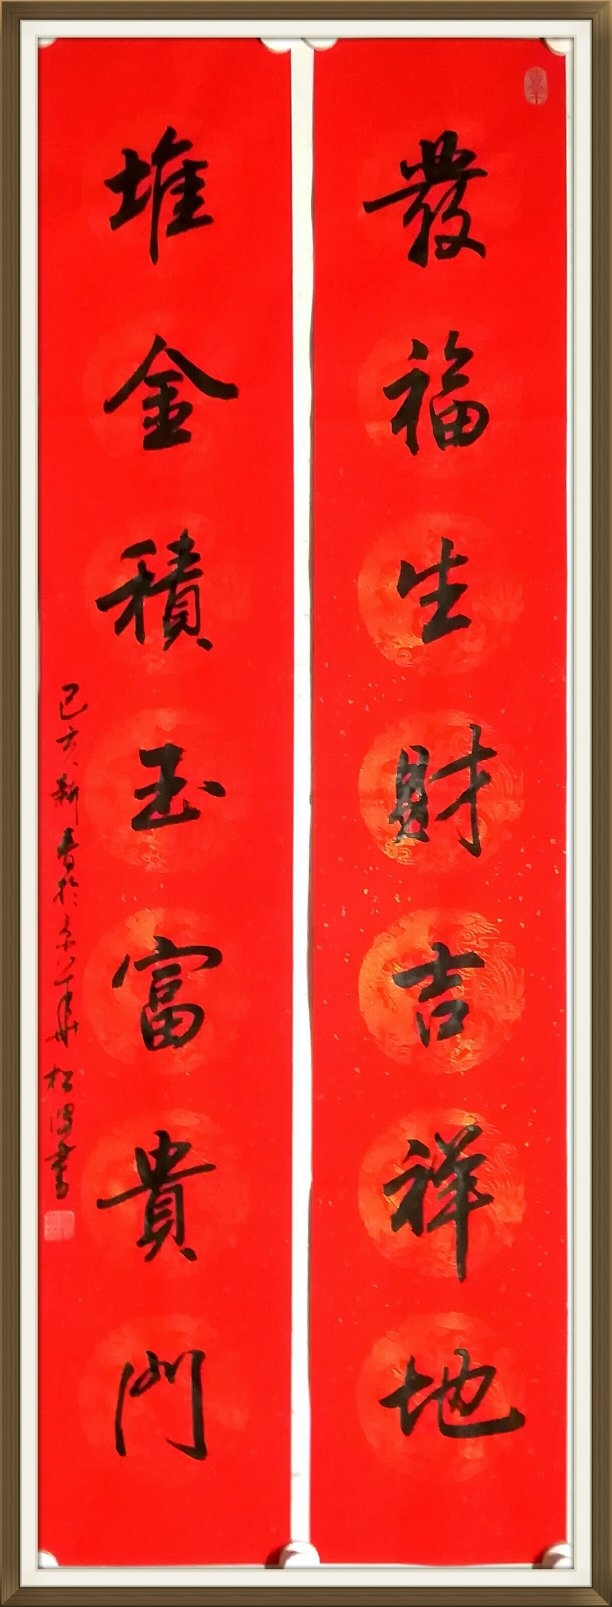 發福生財吉祥地
堆金積玉富貴門
己亥新春於京華 松濤書